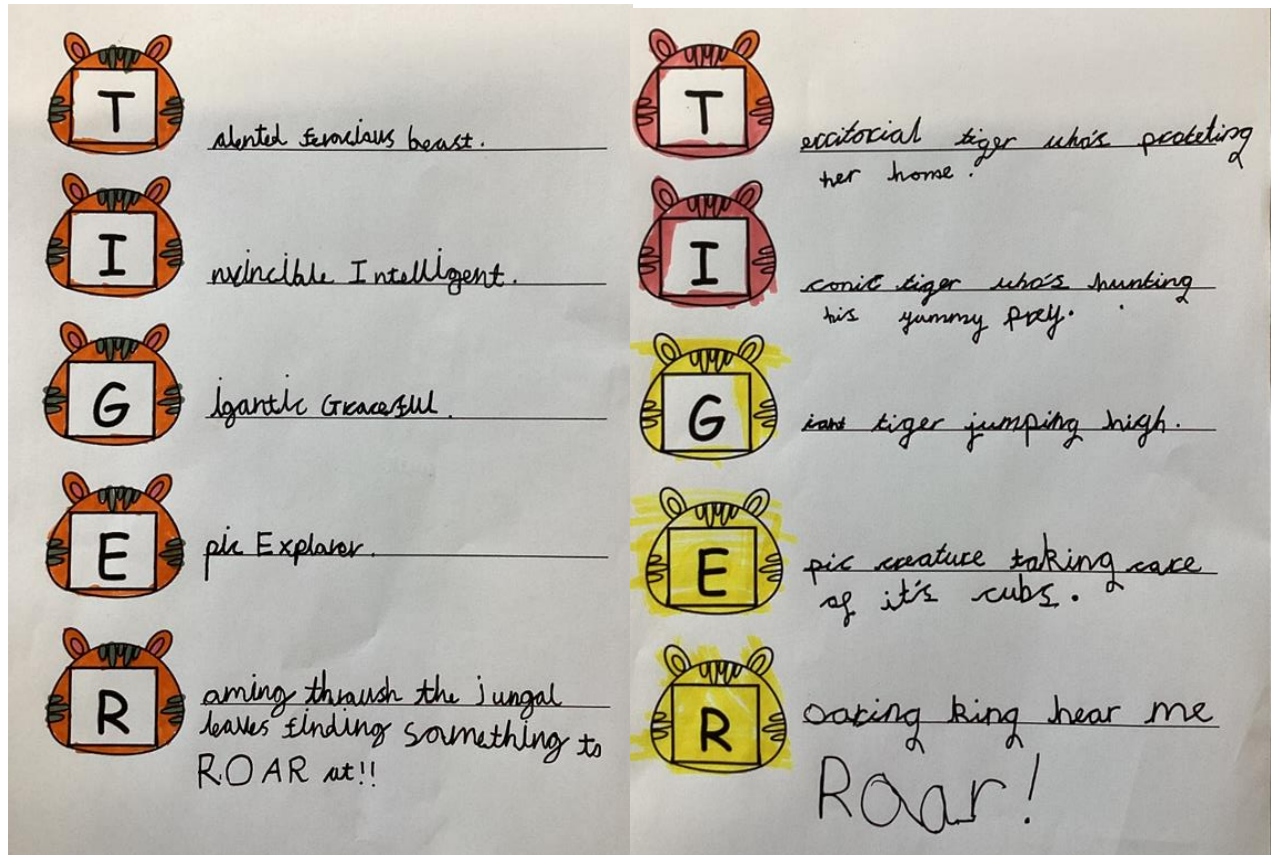 T alented ferocious beast.
I nvincible Intelligent.
G igantic Graceful.
E pic Explorer.
R oming throush the jungal
leaves finding soumething to
ROAR at!!
T erritorial tiger who's proteting
her home.
I conic tiger who's hunting
his yummy prey.
G iant tiger jumping high.
E pic creature taking care
of it's cubs.
R oaring king hear me
Roar!